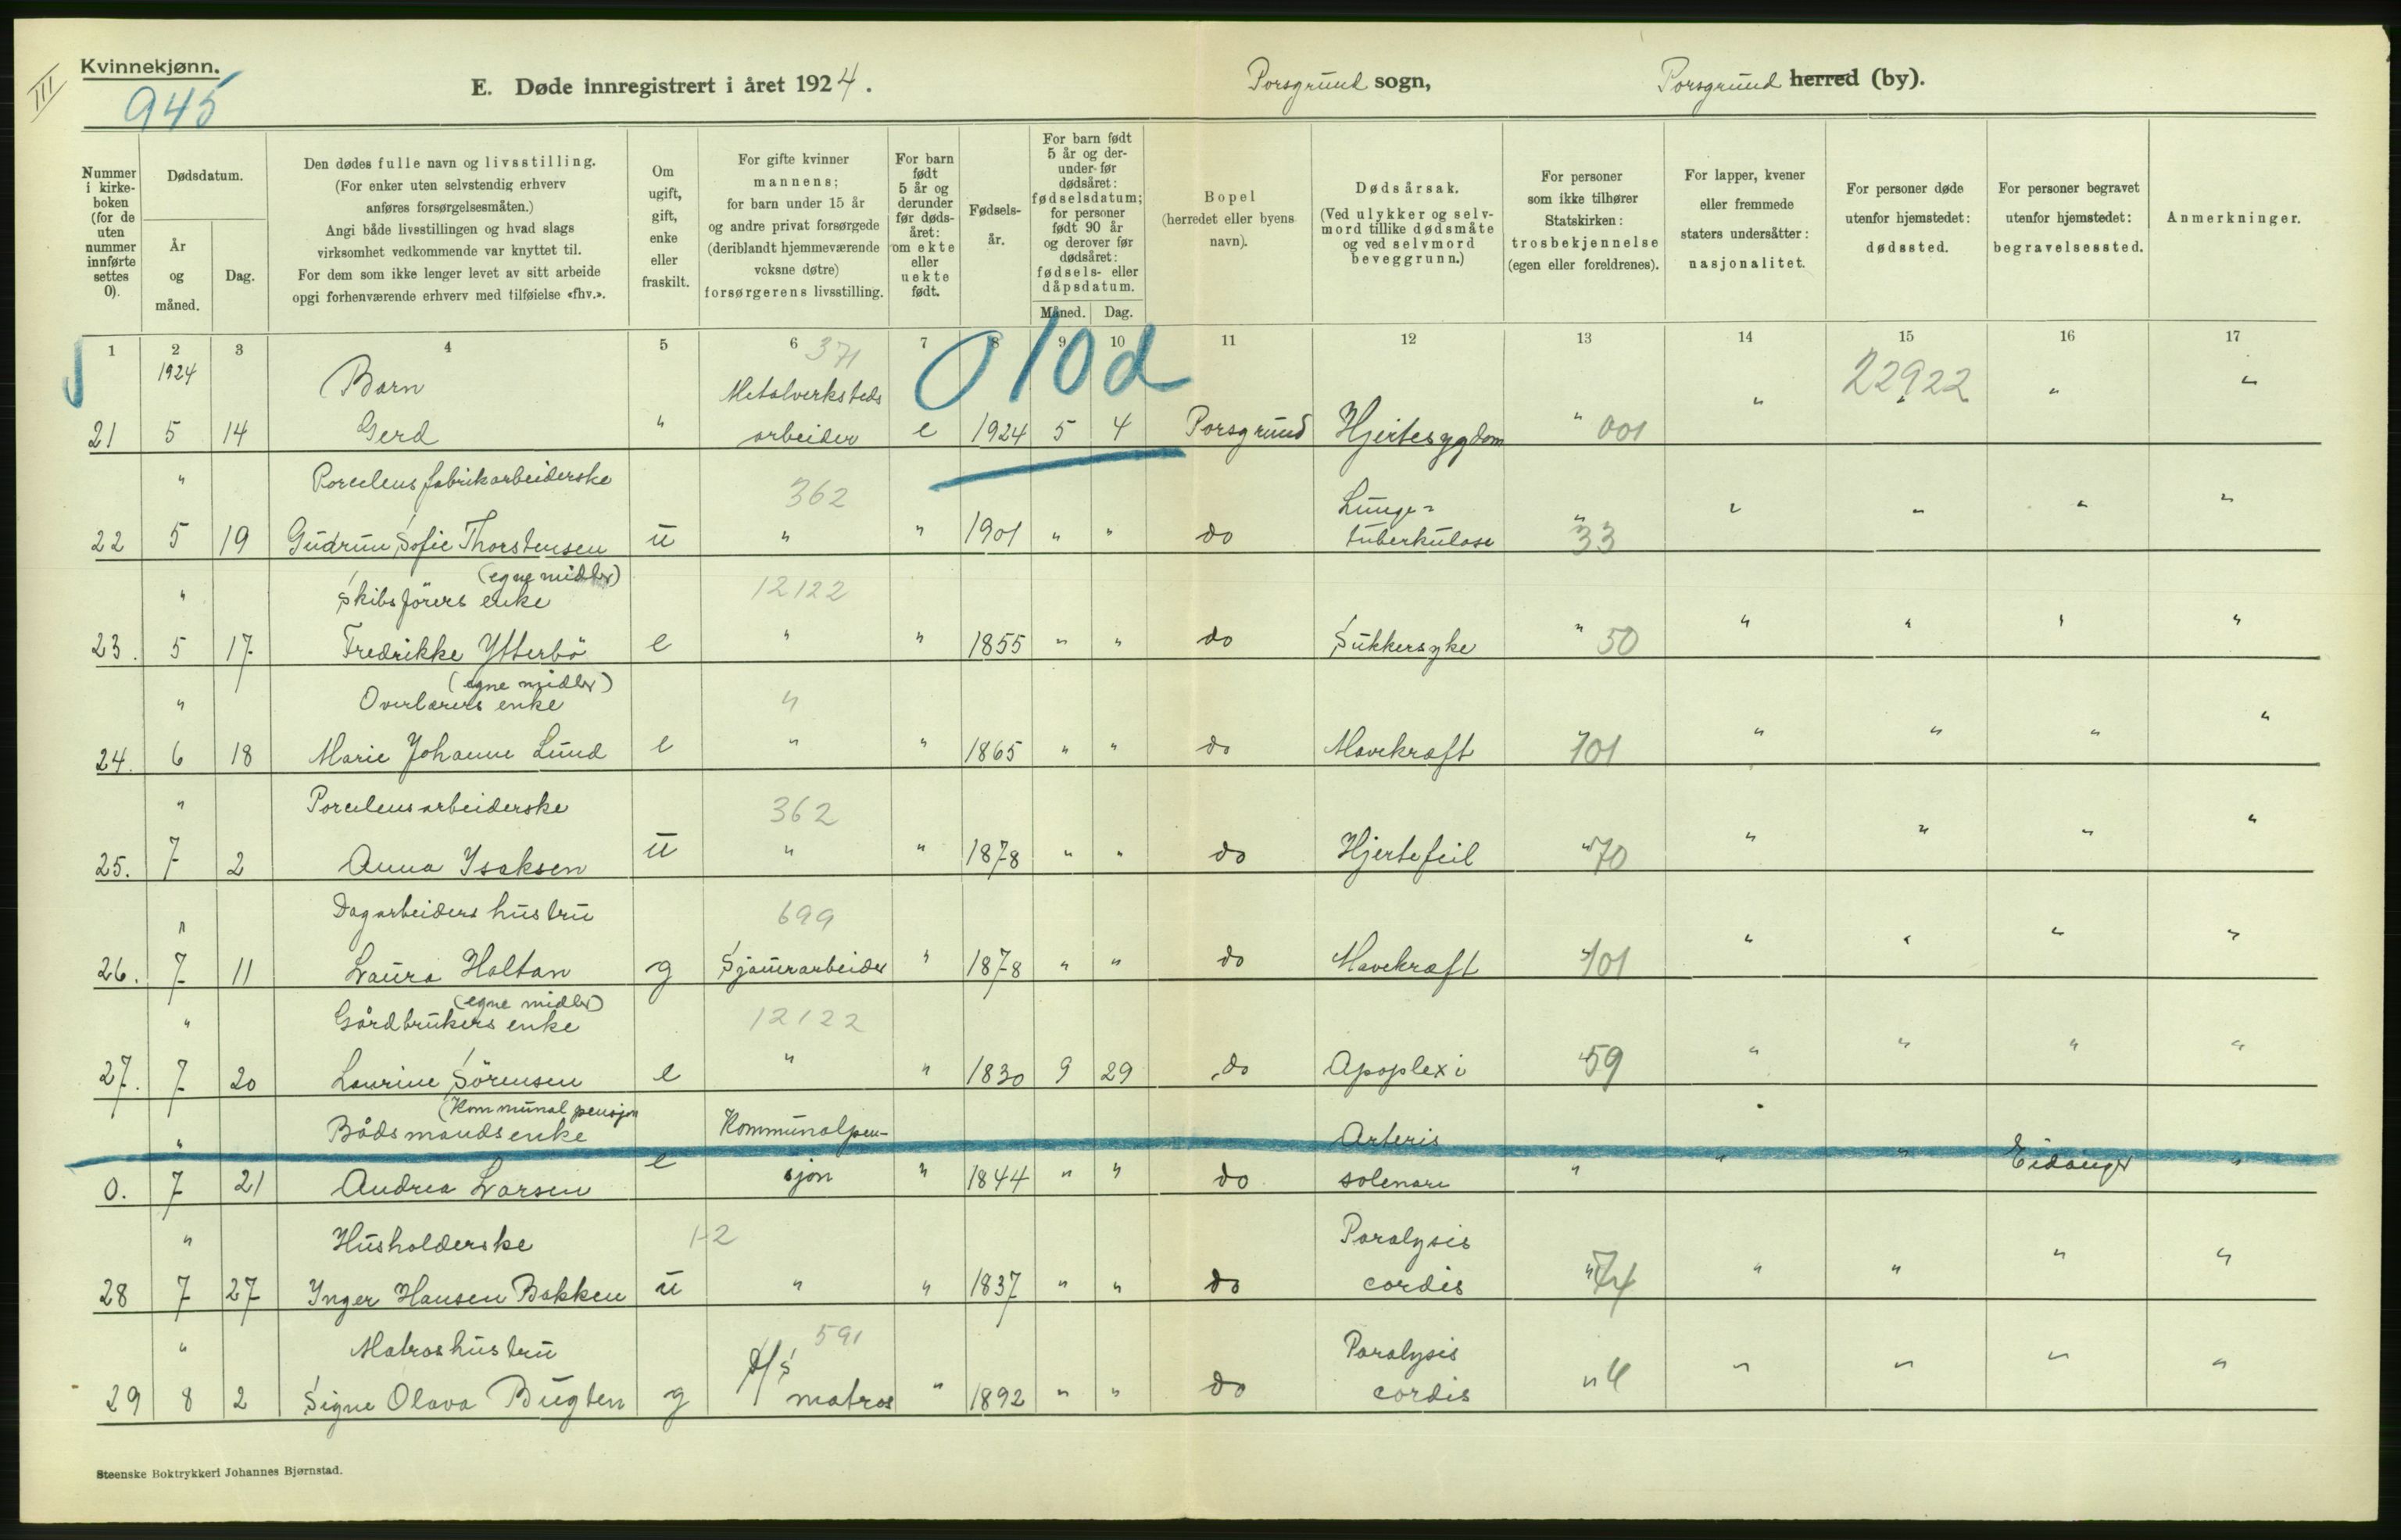 III
Kvinnekjønn.
945
E. Døde innregistrert i året 1924.
Porsgrund sogn,
Porsgrund herred (by).
Nummer i kirke-boken (for de uten nummer innførte settes 0).
Dødsdatum.
År og måned.
Dag.
Den dødes fulle navn og livsstilling.
(For enker uten selvstendig erhverv
anføres forsørgelsesmåten.)
Angi både livsstillingen og hvad slags
virksomhet vedkommende var knyttet til.
For dem som ikke lenger levet av sitt arbeide
opgi forhenværende erhverv med tilføielse «fhv.».
Om ugift, gift, enke eller fraskilt.
For gifte kvinner
mannens;
for barn under 15 år
og andre privat forsørgede
(deriblandt hjemmeværende
voksne døtre)
forsørgerens livsstilling.
For barn født 5 år og derunder før døds-året: om ekte eller uekte født.
Fødsels-år.
For barn født 5 år og der-under før dødsåret: fødselsdatum; for personer født 90 år og derover før dødsåret: fødsels- eller dåpsdatum.
Måned. Dag.
Bopel
(herredet eller byens
navn).
Dødsårsak.
(Ved ulykker og selv-
mord tillike dødsmåte
og ved selvmord
beveggrunn.)
For personer
som ikke tilhører
Statskirken:
trosbekjennelse
(egen eller foreldrenes).
For lapper, kvener
eller fremmede
staters undersåtter:
nasjonalitet.
For personer døde
utenfor hjemstedet:
dødssted.
For personer begravet
utenfor hjemstedet:
begravelsessted.
Anmerkninger.
1 2 3 4 5 6 7 8 9 10 11 12 13 14 15 16 17
1924 Barn 371 Metalverksteds 010d 22922 "
21 5 14 Gerd " arbeider e 1924 5 4 Porsgrund Hjertesygdom " 001 " " "
" Porcelensfabrikarbeiderske 362 Lunge=
22 5 19 Gudrun Sofie Thorstensen u " " 1901 " " do tuberkulose " 33 " " " "
(egne midler)
" Skibsförers enke 12122
23. 5 17 Fredrikke Ytterbö e " " 1855 " " do Sukkersyke " 50 " " " "
(egne midler)
" Overlærers enke "
24. 6 18 Marie Johanne Lund e " " 1865 " " do Mavekræft " 101 " " " "
" Porcelensarbeiderske 362
25. 7 2 Anna Isaksen u " " 1878 " " do Hjertefeil " 70 " " " "
" Dagarbeiders hustru 699
26. 7 11 Laura Holtan g Sjauerarbeider " 1878 " " do Mavekræft " 101 " " " "
(egne midler)
" Gårdbrukers enke 12122
27. 7 20 Laurine Sörensen e " " 1830 9 29 do Apoplexi " 59 " " " "
(Kommunal pensjon
" Bådsmandsenke Kommunalpen- Arteris
0. 7 21 Andrea Larsen e sjon " 1844 " " do solenare " " " Eidanger "
" Husholderske 1-2 Paralysis
28 7 27 Inger Hansen Bakken u " " 1837 " " do cordis " 74 " " " "
" Matroshustru 591 Paralysis
29 8 2 Signe Olava Bugten g D/S matros " 1892 " " do cordis " 4 " " " "
Steenske Boktrykkeri Johannes Bjørnstad.